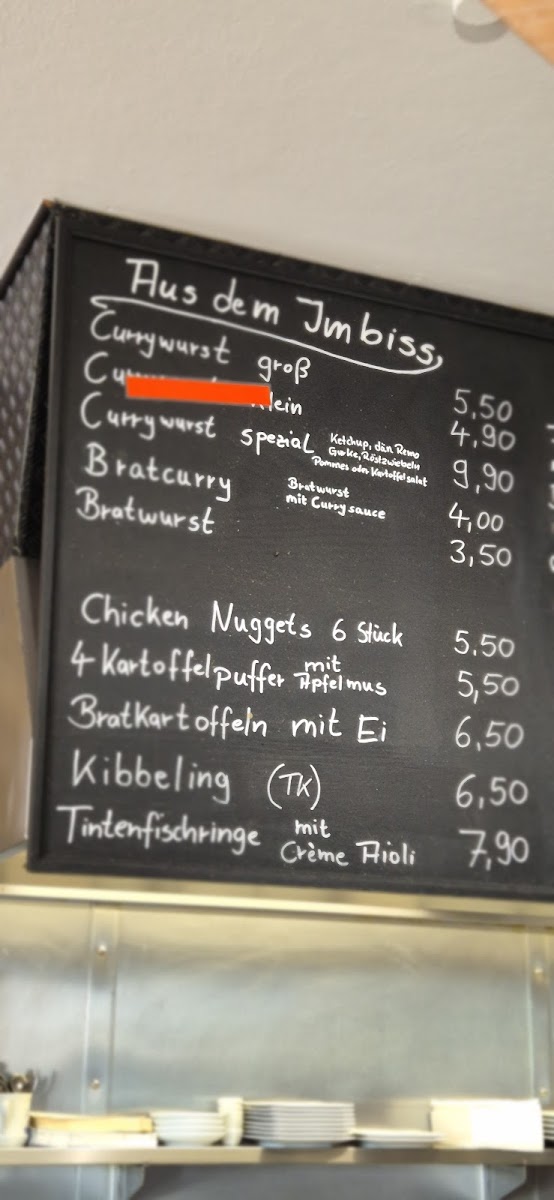 Aus dem Imbiss
Currywurst groß 5,50
Cu lein 4,90
Currywurst spezial Ketchup, dän Remo 9,90
Gurke, Röstzwiebeln
Pommes oder Kartoffelsalat
Bratcurry Bratwurst 4,00
mit Currysauce
Bratwurst 3,50
Chicken Nuggets 6 Stück 5,50
4 Kartoffelpuffer mit Apfelmus 5,50
Bratkartoffeln mit Ei 6,50
Kibbeling (TK) 6,50
Tintenfischringe mit 7,90
Crème Aioli